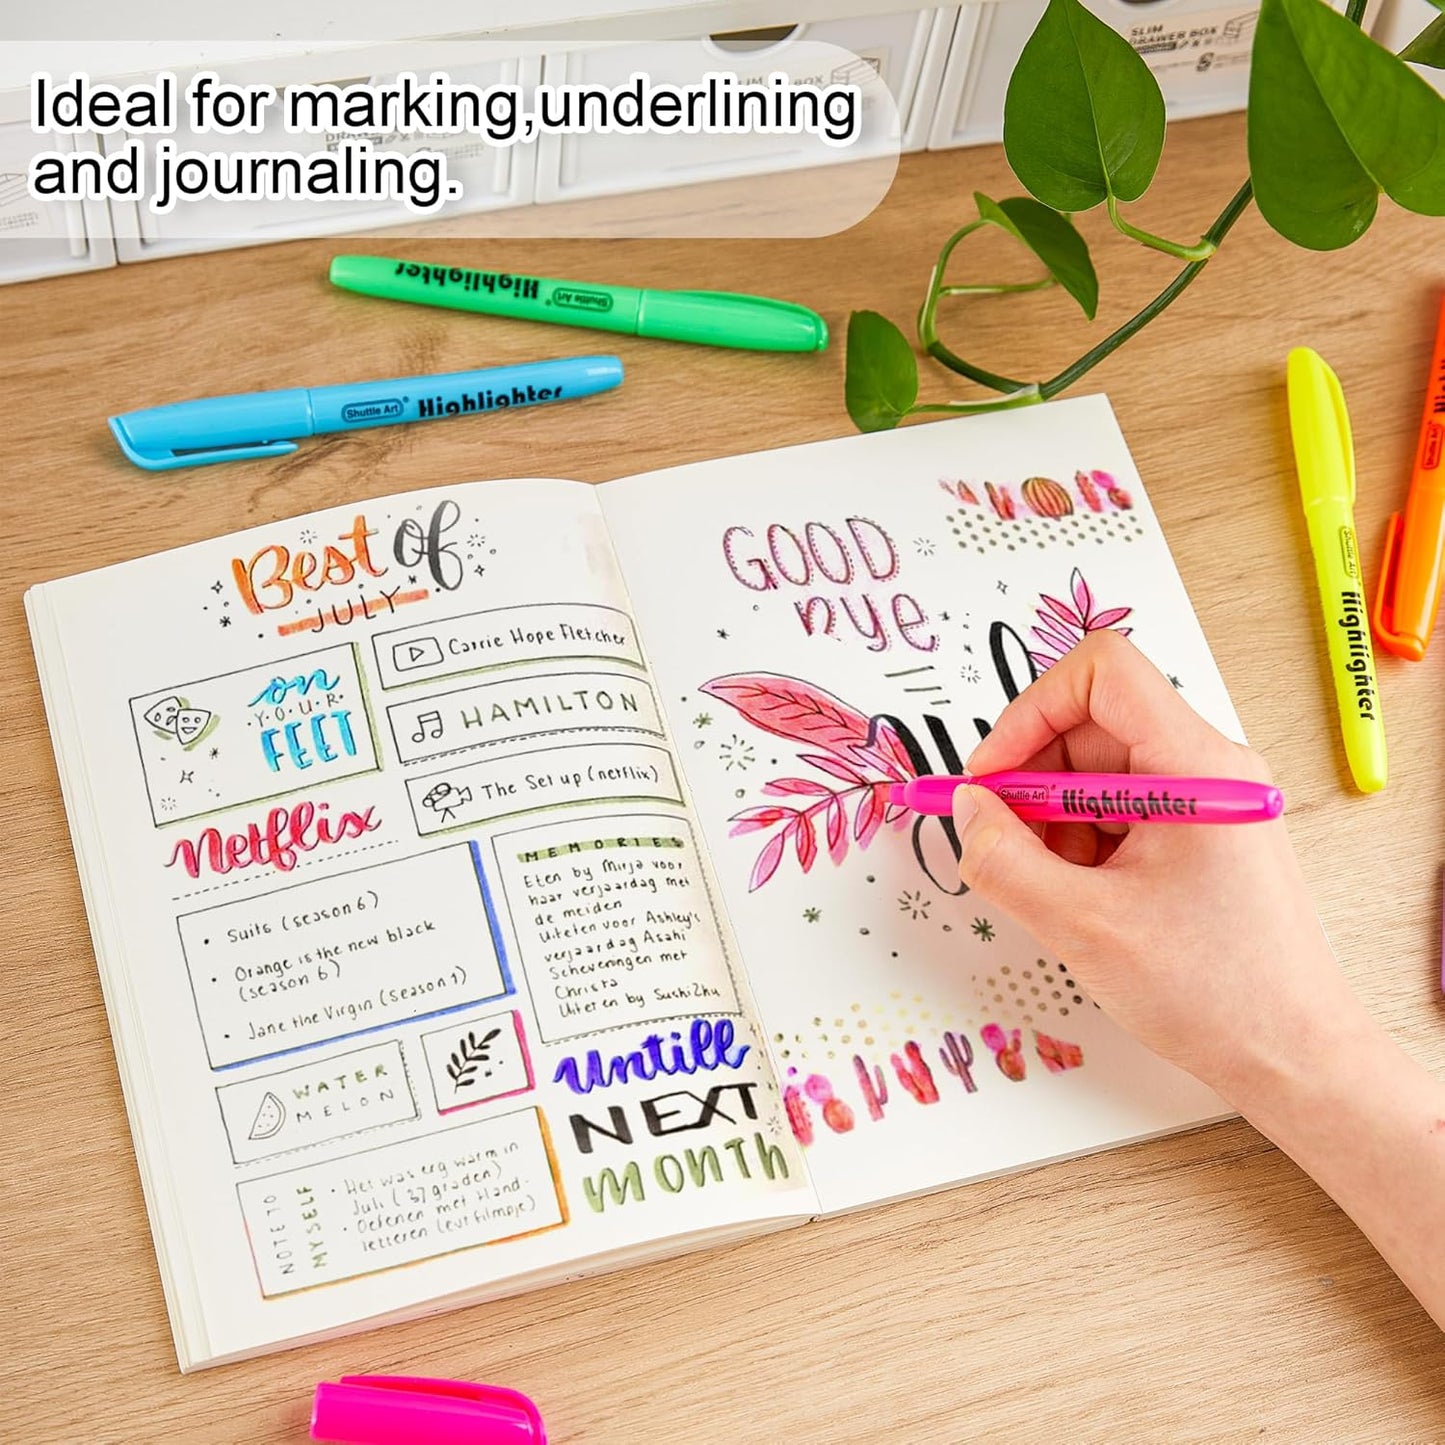 Ideal for marking,underlining
and journaling.
SLIM
DRAWER BOX
Shuttle Art® Highlighter
Shuttle Art® Highlighter
Best of
JULY
on
YOUR
FEET
Carrie Hope Fletcher
HAMILTON
The Set up (netflix)
Netflix
• Suits (season 6)
• Orange is the new black
(season 6)
• Jane the Virgin (Season 1)
MEMORIES
Eten by Mirja voor
haar verjaardag met
de meiden
Uiteten voor Ashley's
verjaardag Asahi
Scheveningen met
Christa
Uiteten by Sushi Zhu
WATER
MELON
NOTE TO
MYSELF
• Het was erg warm in
Juli (37 graden)
• Oefenen met Hand-
letteren
Untill
NEXT
MONTH
GOOD
Bye
Shuttle Art® Highlighter
Shuttle Art Highlighter
Shuttle Art